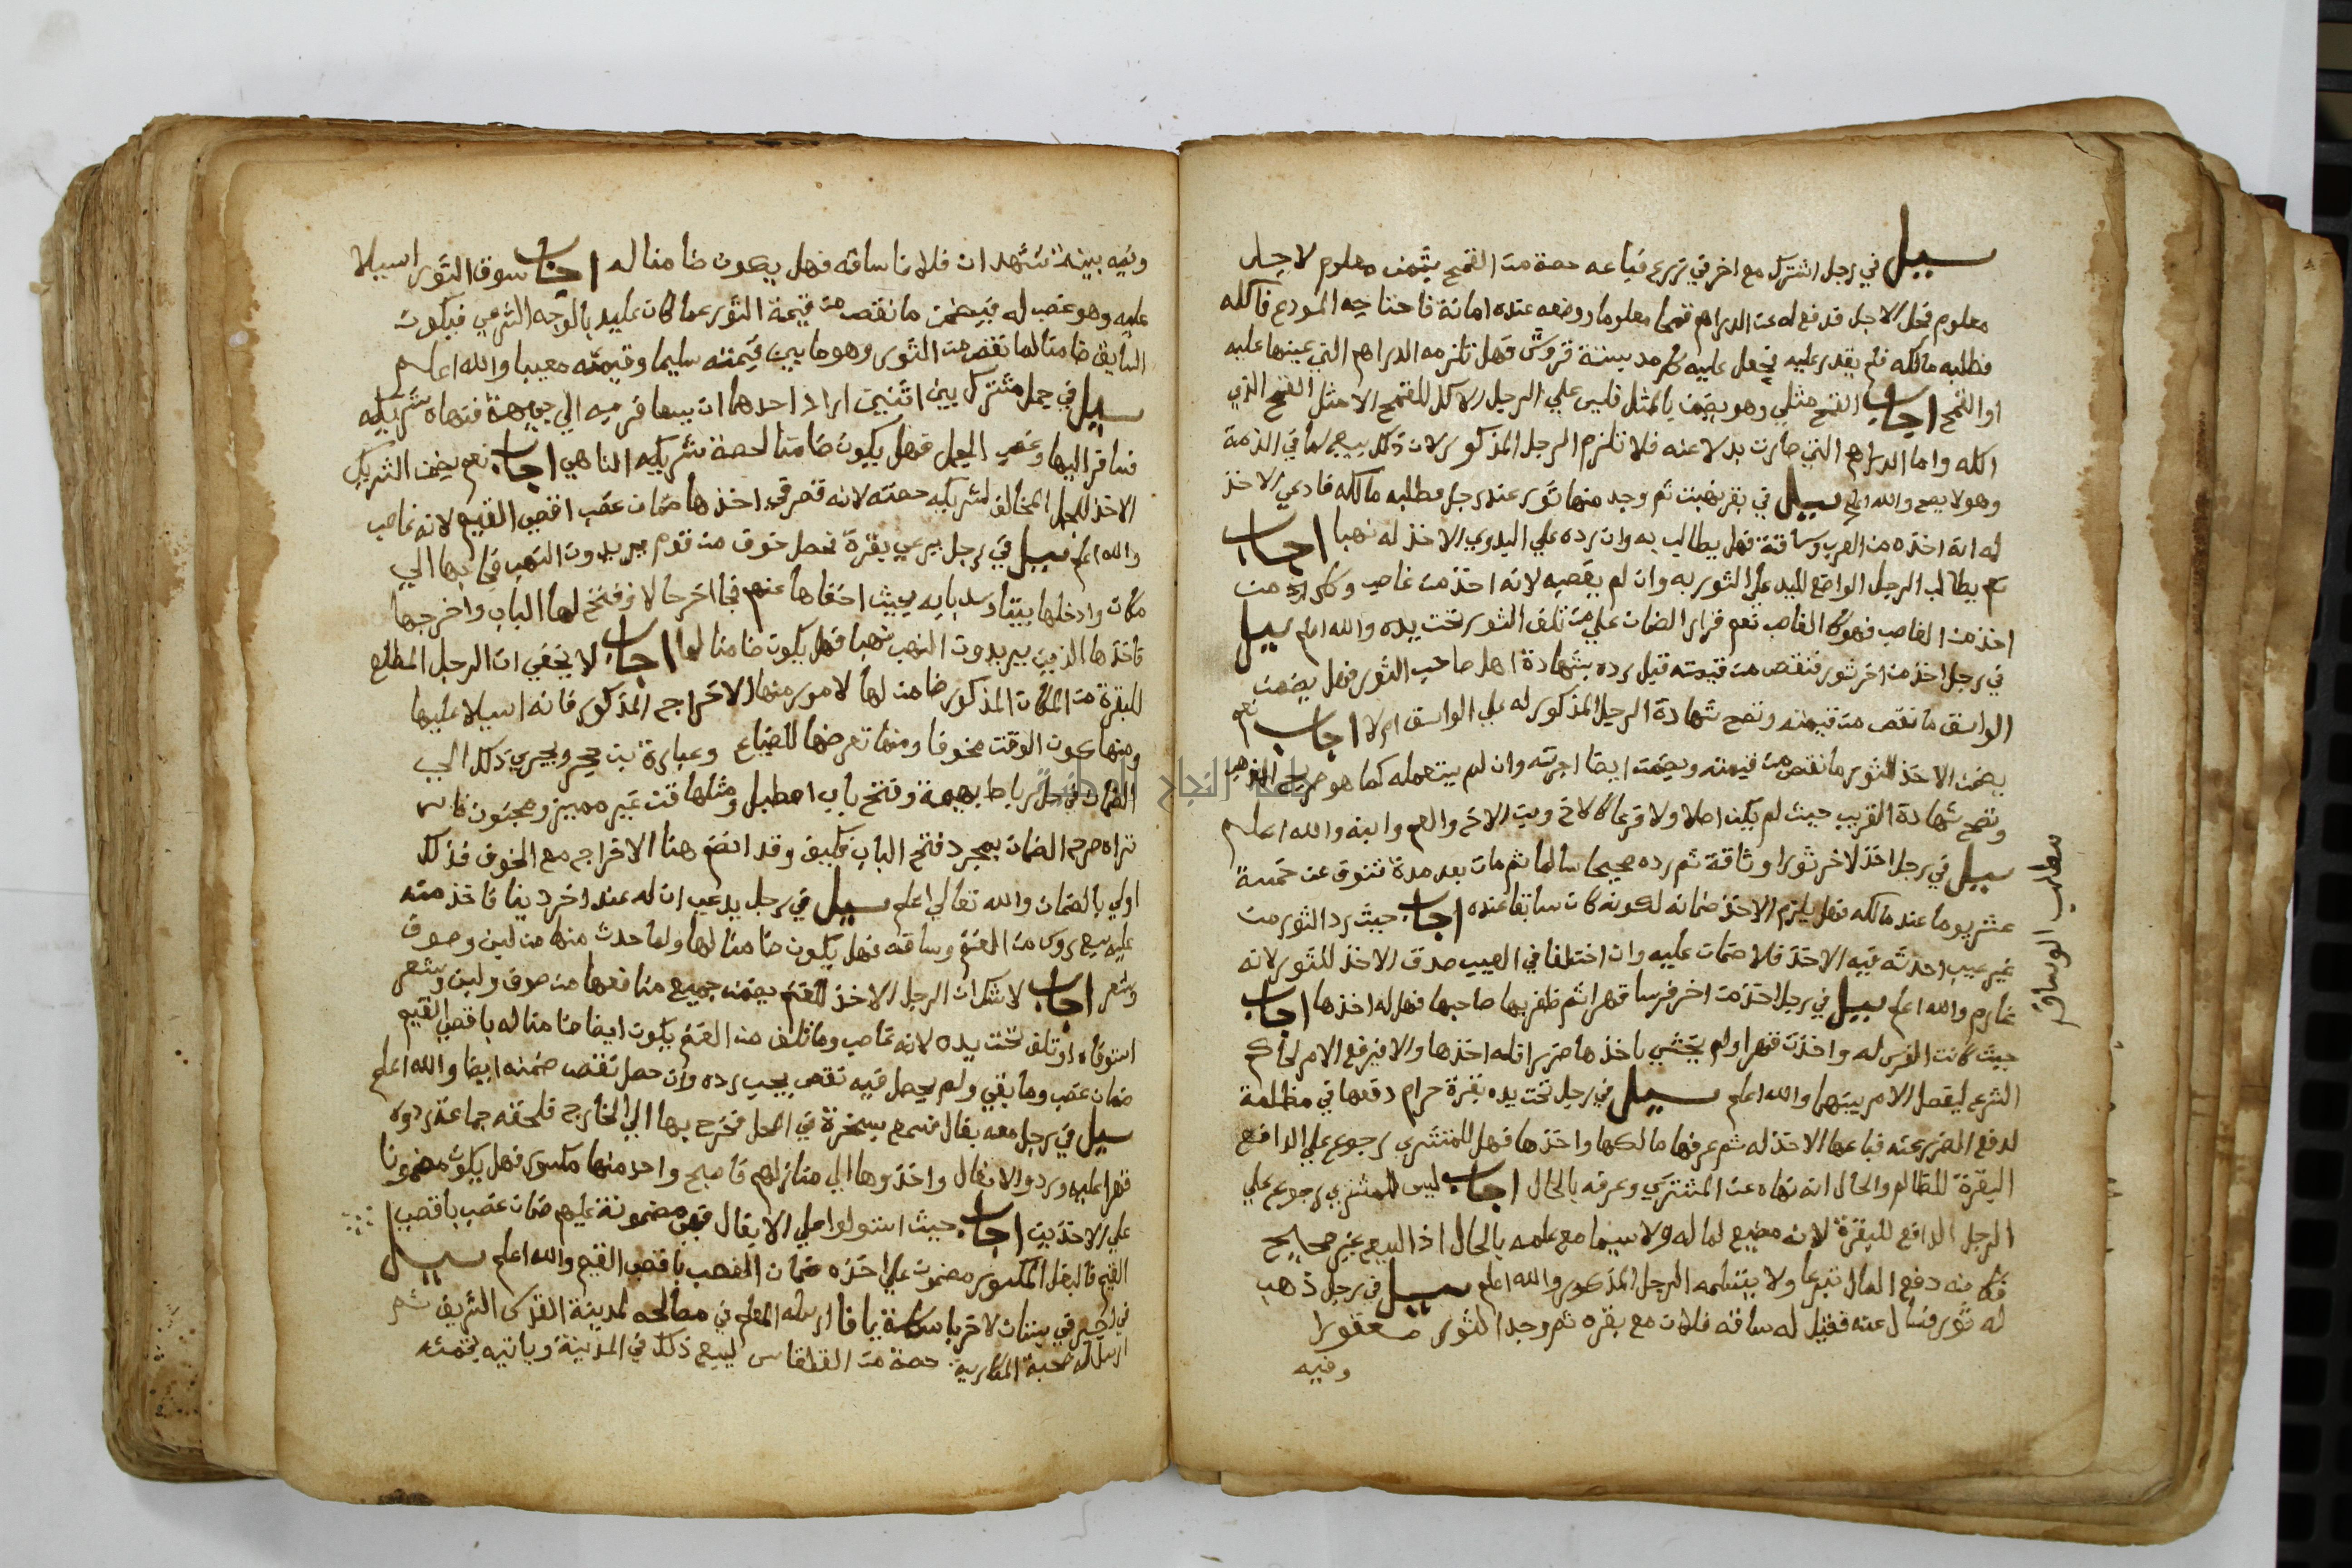 سيل في رجل اشترك مع اخر في زرع فباعه حصة من القمح بثمن معلوم لاجل
معلوم فحل الاجل فدفع له عن الدراهم قمحا معلوما ووضعه عنده امانة فاحتاجه المودع فاكله
فطلبه مالكه فلم يقدر عليه فجعل عليه كل مد بستة قروش فهل تلزمه الدراهم التي عينها عليه
او القمح اجاب القمح مثلي وهو يضمن بالمثل فليس علي الرجل الاكل للقمح الا مثل القمح الذي
اكله واما الدراهم التي صارت بدلا عنه فلا تلزم الرجل المذكور لان ذلك بيع لما في الذمة
وهو لا يصح والله اعلم سيل في بقر نهبت ثم وجد منها ثور عند رجل فطلبه مالكه فادعي الاخذ
له انه اخذه من العرب وساقة فهل يطالب به وان رده علي البدوي الاخذ له نهبا اجاب
نعم يطالب الرجل الواضع اليد علي الثور به وان لم يغصبه لانه اخذ من غاصب وكل من
اخذ من الغاصب فهو كالغاصب نعم قرار الضمان علي من تلف الثور تحت يده والله اعلم سيل
في رجل اخذ من اخر ثور فنقص من قيمته قبل رده بشهادة اهل صاحب الثور فهل يضمن
الواسق ما نقص من قيمته وتصح شهادة الرجل المذكور له علي الواسق ام لا اجاب نعم
يضمن الاخذ للثور ما نقص من قيمته ويضمن ايضا اجرته وان لم يستعمله كما هو صريح المذهب
وتصح شهادة القريب حيث لم يكن اصلا ولا فرعا كالاخ وبنت الاخ والعم وابنه والله اعلم
سيل في رجل اخذ لاخر ثورا وثاقة ثم رده صحيحا سالما ثم مات بعد مدة تنوف عن خمسة
عشر يوما عند مالكه فهل يلزم الاخذ ضمانه لكونه كان سابقا عنده اجاب حيث رد الثور من
غير عيب احدثه فيه الاخذ فلا ضمان عليه وان اختلفا في العيب صدق الاخذ للثور لانه
غارم والله اعلم سيل في رجل اخذ من اخر فرسا قهرا ثم ظفر بها صاحبها فهل له اخذها اجاب
حيث كانت الفرس له واخذت قهرا ولم يخشي باخذها ضررا فله اخذها والا فيرفع الامر لحاكم
الشرع ليفصل الامر بينهما والله اعلم سيل في رجل تحت يده بقرة حرام دفعها في مظلمة
لدفع الضرر عنه فباعها الاخذ له ثم عرفها مالكها واخذها فهل للمشتري رجوع علي الدافع
البقرة للظالم والحال انه نهاه عن المشتري وعرفه بالحال اجاب ليس للمشتري رجوع علي
الرجل الدافع للبقرة لانه مضيع لماله ولا سيما مع علمه بالحال اذ البيع غير صحيح
فكانه دفع المال تبرعا ولا يتظلمه الرجل المذكور والله اعلم سيل في رجل ذهب
له ثور فسال عنه فقيل له ساقه فلان مع بقره ثم وجد الثور معقورا
وفيه
مطلب الوساق
وفيه بينة تشهد ان فلانا ساقه فهل يكون ضامنا له اجاب سوق الثور استيلا
عليه وهو غصب له فيضمن ما نقص من قيمة الثور عما كان عليه بالوجه الشرعي فيكون
السايق ضامنا لما نقص من الثور وهو ما بين قيمته سليما وقيمته معيبا والله اعلم
سيل في جمل مشترك بين اثنين اراد احدهما ان يسافر به الي جهة فنهاه شريكه
فسافر اليها وغصب الجمل فهل يكون ضامنا لحصة شريكه الناهي اجاب نعم يضمن الشريك
الاخذ للجمل المخالف لشريكه حصته لانه قصر في اخذها ضمان غصب اقصي القيم لانه غاصب
والله اعلم سيل في رجل يرعي بقرة فحصل خوف من قوم يريدون النهب فجا بها الي
مكان وادخلها بيتا وسد بابه بحيث اخفاها عنهم فجا اخر حالا وفتح لها الباب واخرجها
فاخذها الذين يريدون النهب نهبا فهل يكون ضامنا لها اجاب لا يخفي ان الرجل المطلع
للبقرة من المكان المذكور ضامن لها لامور منها الاخراج المذكور فانه استيلا عليها
ومنها كون الوقت مخوفا ومنها تعرضها للضياع وعبارة بن حجر ويجري ذلك الي
الضمان في حل رباط بهيمة وفتح باب اصطبل ومثلها قن غير مميز ومجنون فانت
تراه صرح الضمان بمجرد فتح الباب فكيف وقد انضم هنا الاخراج مع الخوف فذلك
اولي بالضمان والله تعالي اعلم سيل في رجل يدعي ان له عند اخر دينا فاخذ منه
عليه سبع روس من الغنم وساقه فهل يكون ضامنا لها ولما حدث منها من لبن وصوف
وشعر اجاب لا شك ان الرجل الاخذ للغنم يضمن جميع منافعها من صوف ولبن وشعر
استوفاه او تلف تحت يده لانه غاصب وما تلف من الغنم يكون ايضا ضامنا له باقصي القيم
ضمان غصب وما بقي ولم يحصل فيه نقص يجب رده وان حصل نقص ضمنه ايضا والله اعلم
سيل في رجل معه بغال فسمع بسخرة في المحل فخرج بها الي الخارج فلحقه جماعة ردوه
قهرا عليه وردوا الابغال واخذوها الي منازلهم فاصبح واحد منها مكسور فهل يكون مضمونا
علي الاخذين اجاب حيث استولوا علي الابغال فهي مضمونة عليهم ضمان غصب باقصي
القيم فالبغل المكسور مضمون علي اخذه ضمان الغصب باقصي القيم والله اعلم سيل
في اجير في بستان لاخر باسكلة يافا ارسله المعلم في مصالحه لمدينة القدس الشريف ثم
ارسل له صحبة المكارية حصة من القلقاس ليبيع ذلك في المدينة وياتيه بثمنه